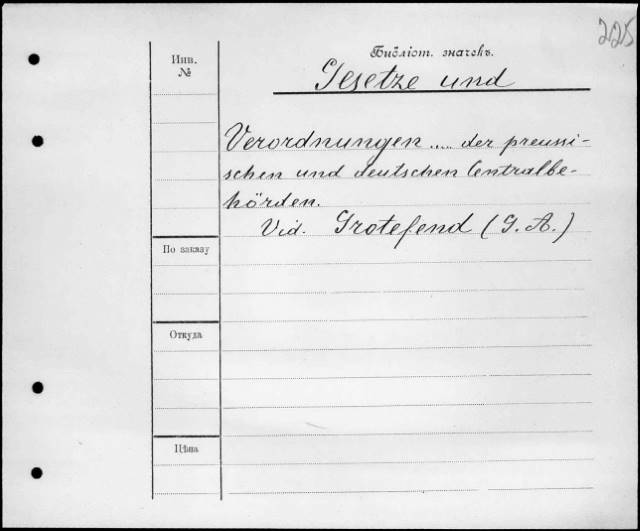 225
Инв.
№
Библіот. значекъ.
Gesetze und
Verordnungen .... der preussi-
schen und deutschen Centralbe-
hörden.
Vid. Grotefend (G. A.)
По заказу
Откуда
Цѣна